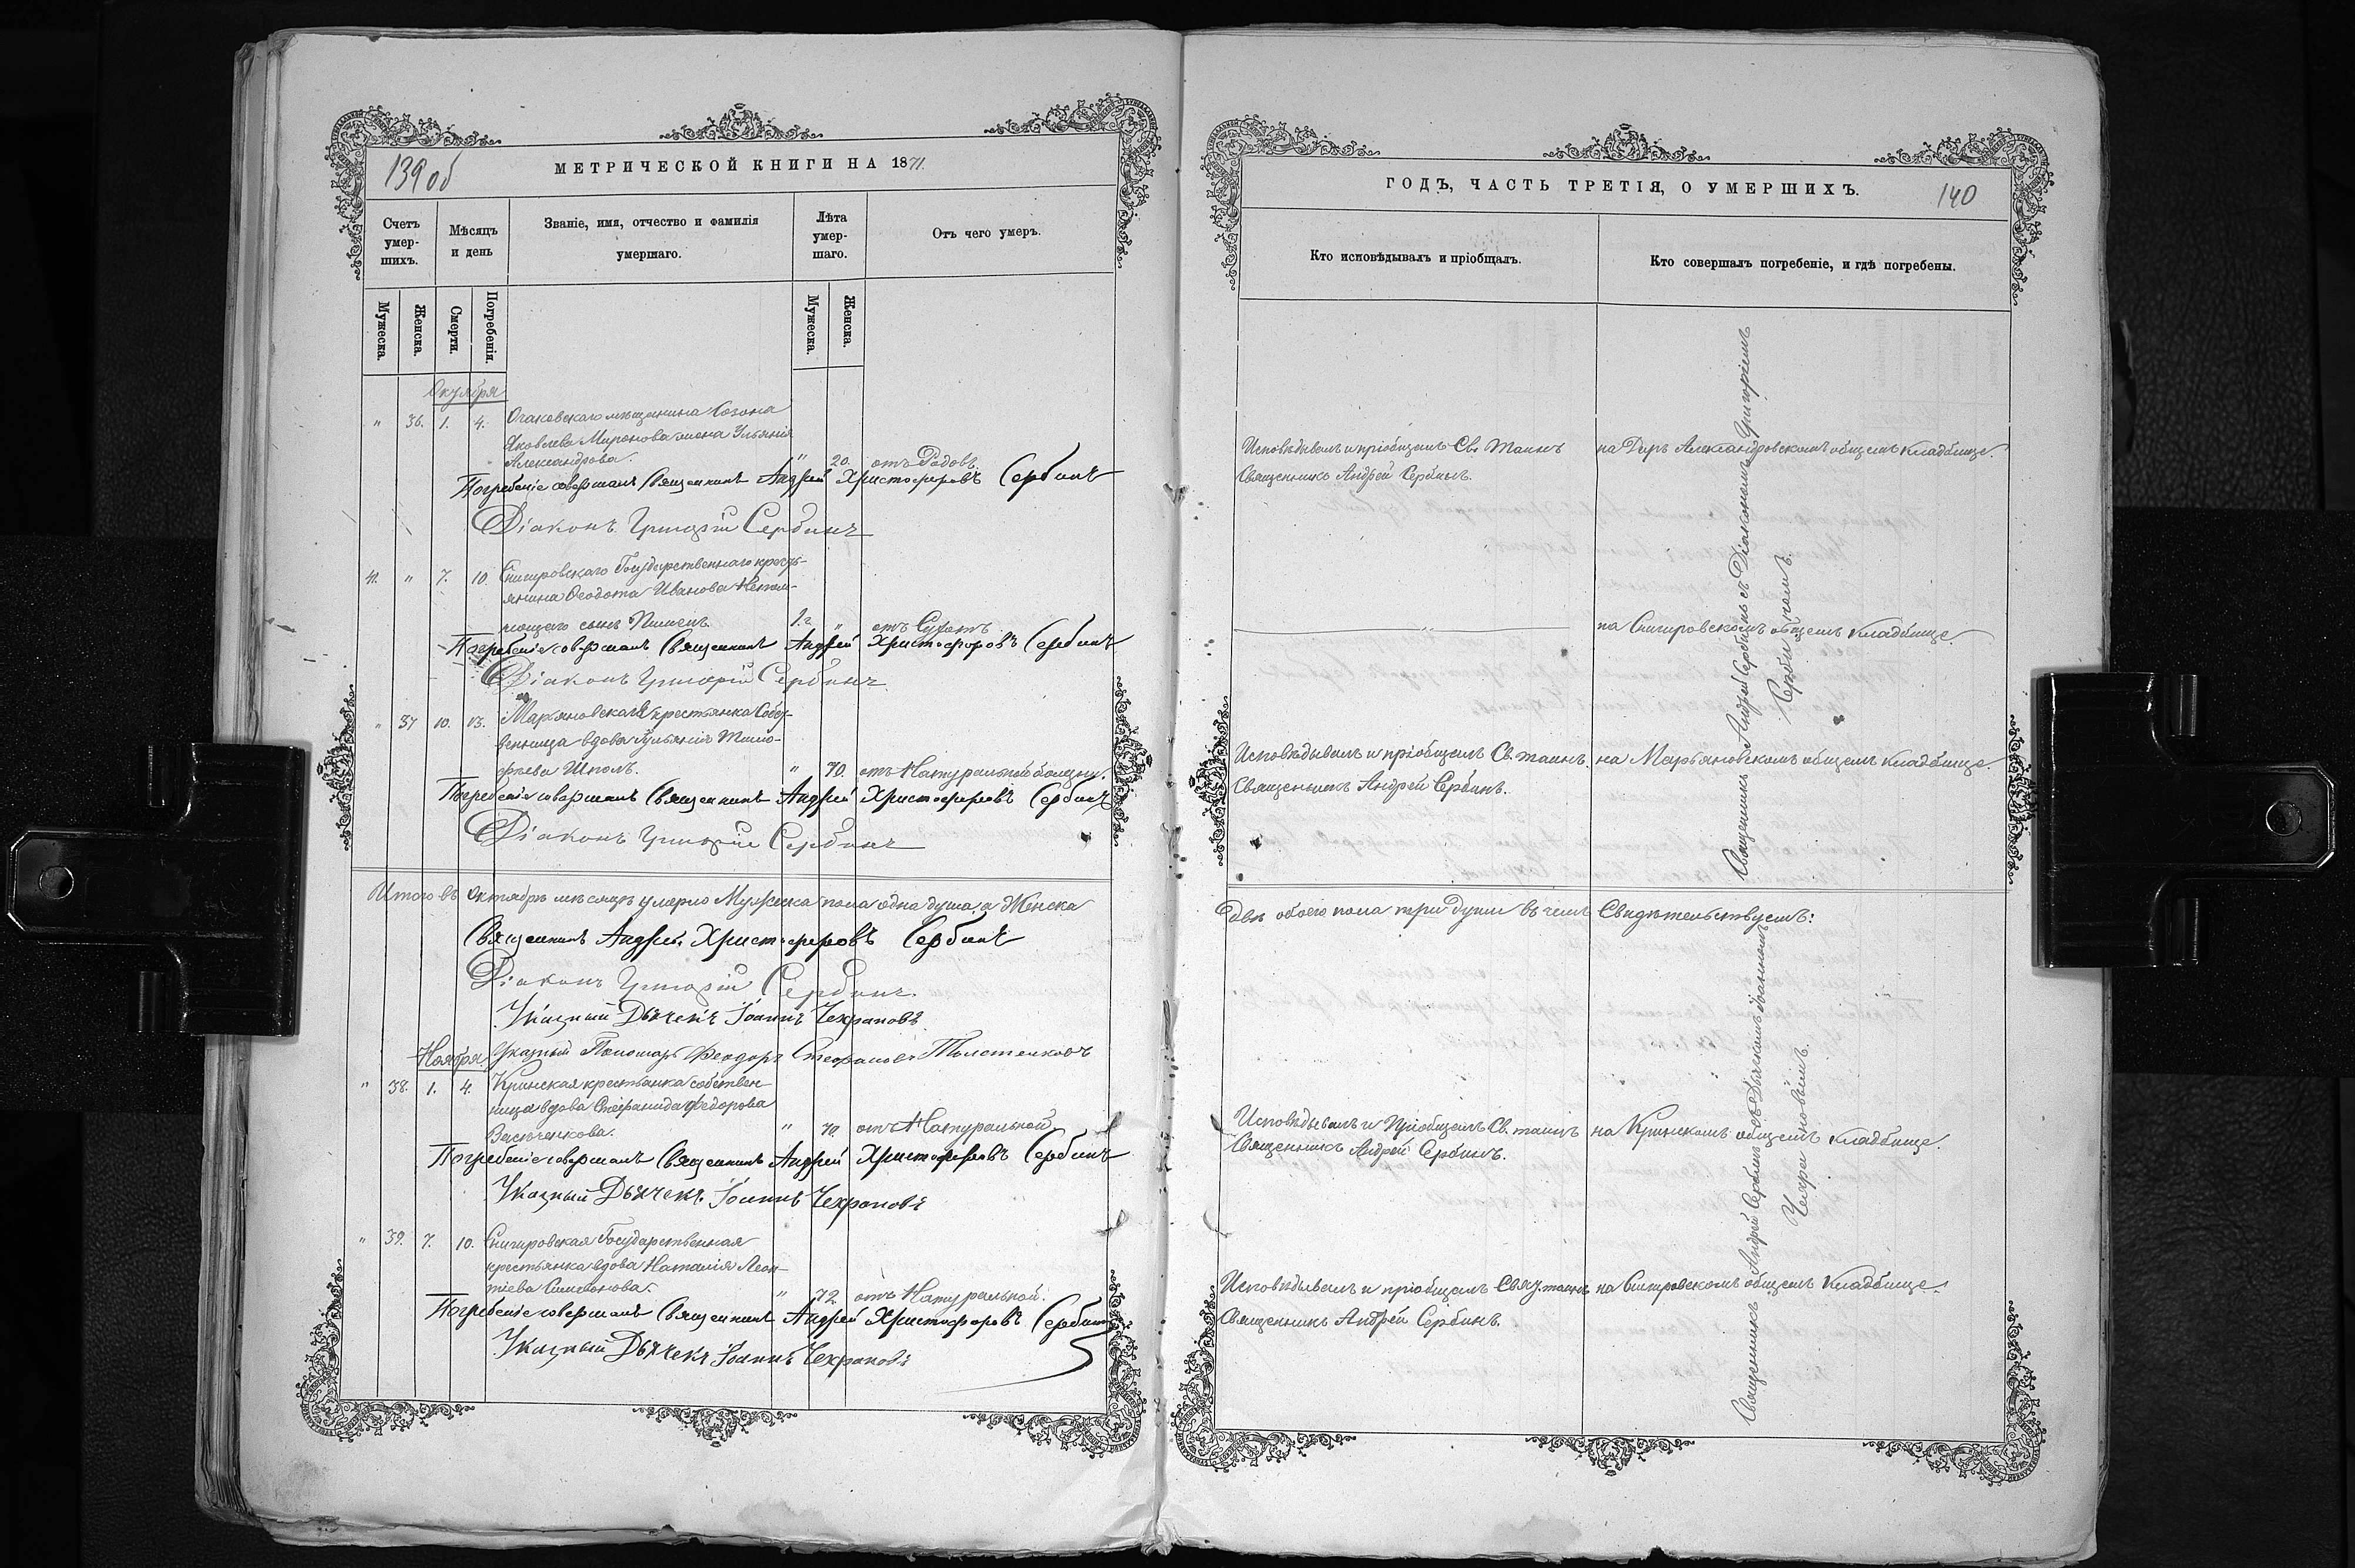 139 об
МЕТРИЧЕСКОЙ КНИГИ НА 1871.
Счетъ умер-шихъ.
Мѣсяцъ и день
Званіе, имя, отчество и фамилія умершаго.
Лѣта умер-шаго.
Отъ чего умеръ.
Мужеска.
Женска.
Смерти.
Погребенія.
Мужеска.
Женска.
Октября
" 36. 1. 4. Очаковскаго мѣщанина Созона
Яковлева Миронова жена Ульянія
Александрова. " 20. отъ Родовъ.
Погребеніе совершалъ Священникъ Андрей Христофоровъ Сербинъ
Діаконъ Григорій Сербинъ
41. " 7. 10. Снигировскаго Государственнаго кресть-
янина Ѳеодота Иванова
сынъ Пименъ. 1.г. " отъ Сухотъ
Погребеніе совершалъ Священникъ Андрей Христофоровъ Сербинъ
Діаконъ Григорій Сербинъ
" 37 10. 13. Марьяновская крестьянка Собс-
венница вдова Іульянія Тимо-
феева Шполъ. " 70. отъ Натуральной болезни.
Погребеніе совершалъ Священникъ Андрей Христофоровъ Сербинъ
Діаконъ Григорій Сербинъ
Итого въ Октябрѣ мѣсяцѣ умерло Мужеска пола одна душа, а Женска
Священникъ Андрей Христофоровъ Сербинъ
Діаконъ Григорій Сербинъ.
Указный Дьячекъ Іоаннъ Чехрановъ
Указный Пономарь Феодоръ Стефановъ Толстенковъ
Ноября.
" 38. 1. 4. Кринская крестьянка собствен-
ница вдова Стефанида Федорова
Васюченкова. " 70. отъ Натуральной
Погребеніе совершалъ Священникъ Андрей Христофоровъ Сербинъ
Указный Дьячекъ Іоаннъ Чехрановъ
" 39. 7. 10. Снигировская Государственная
крестьянка вдова Наталія Леон-
тіева Симвонова. " 72 отъ Натуральной.
Погребеніе совершалъ Священникъ Андрей Христофоровъ Сербинъ
Указный Дьячекъ Іоаннъ Чехрановъ
ГОДЪ, ЧАСТЬ ТРЕТІЯ, О УМЕРШИХЪ.
140
Кто исповѣдывалъ и пріобщалъ.
Кто совершалъ погребеніе, и гдѣ погребены.
Исповѣдывалъ и пріобщалъ Св. Таинъ на Дер. Александровскомъ общемъ кладбище.
Священникъ Андрей Сербинъ.
" на Снигировскомъ общемъ кладбище
Исповѣдывалъ и пріобщалъ Св. таинъ. на Марьяновскомъ общемъ кладбище
Священникъ Андрей Сербинъ.
Священникъ Андрей Сербинъ съ Діакономъ Григоріемъ
Сербиномъ.
двѣ обоего пола три души въ чемъ Свидѣтельствуемъ:
Исповѣдывалъ и Пріобщалъ Св. таинъ на Кринскомъ общемъ кладбище.
Священникъ Андрей Сербинъ.
Исповѣдывалъ и пріобщалъ Свят. таинъ на Снигировскомъ общемъ Кладбище.
Священникъ Андрей Сербинъ.
Священникъ Андрей Сербинъ съ Дьячкомъ Іоанномъ
Чехрановымъ.